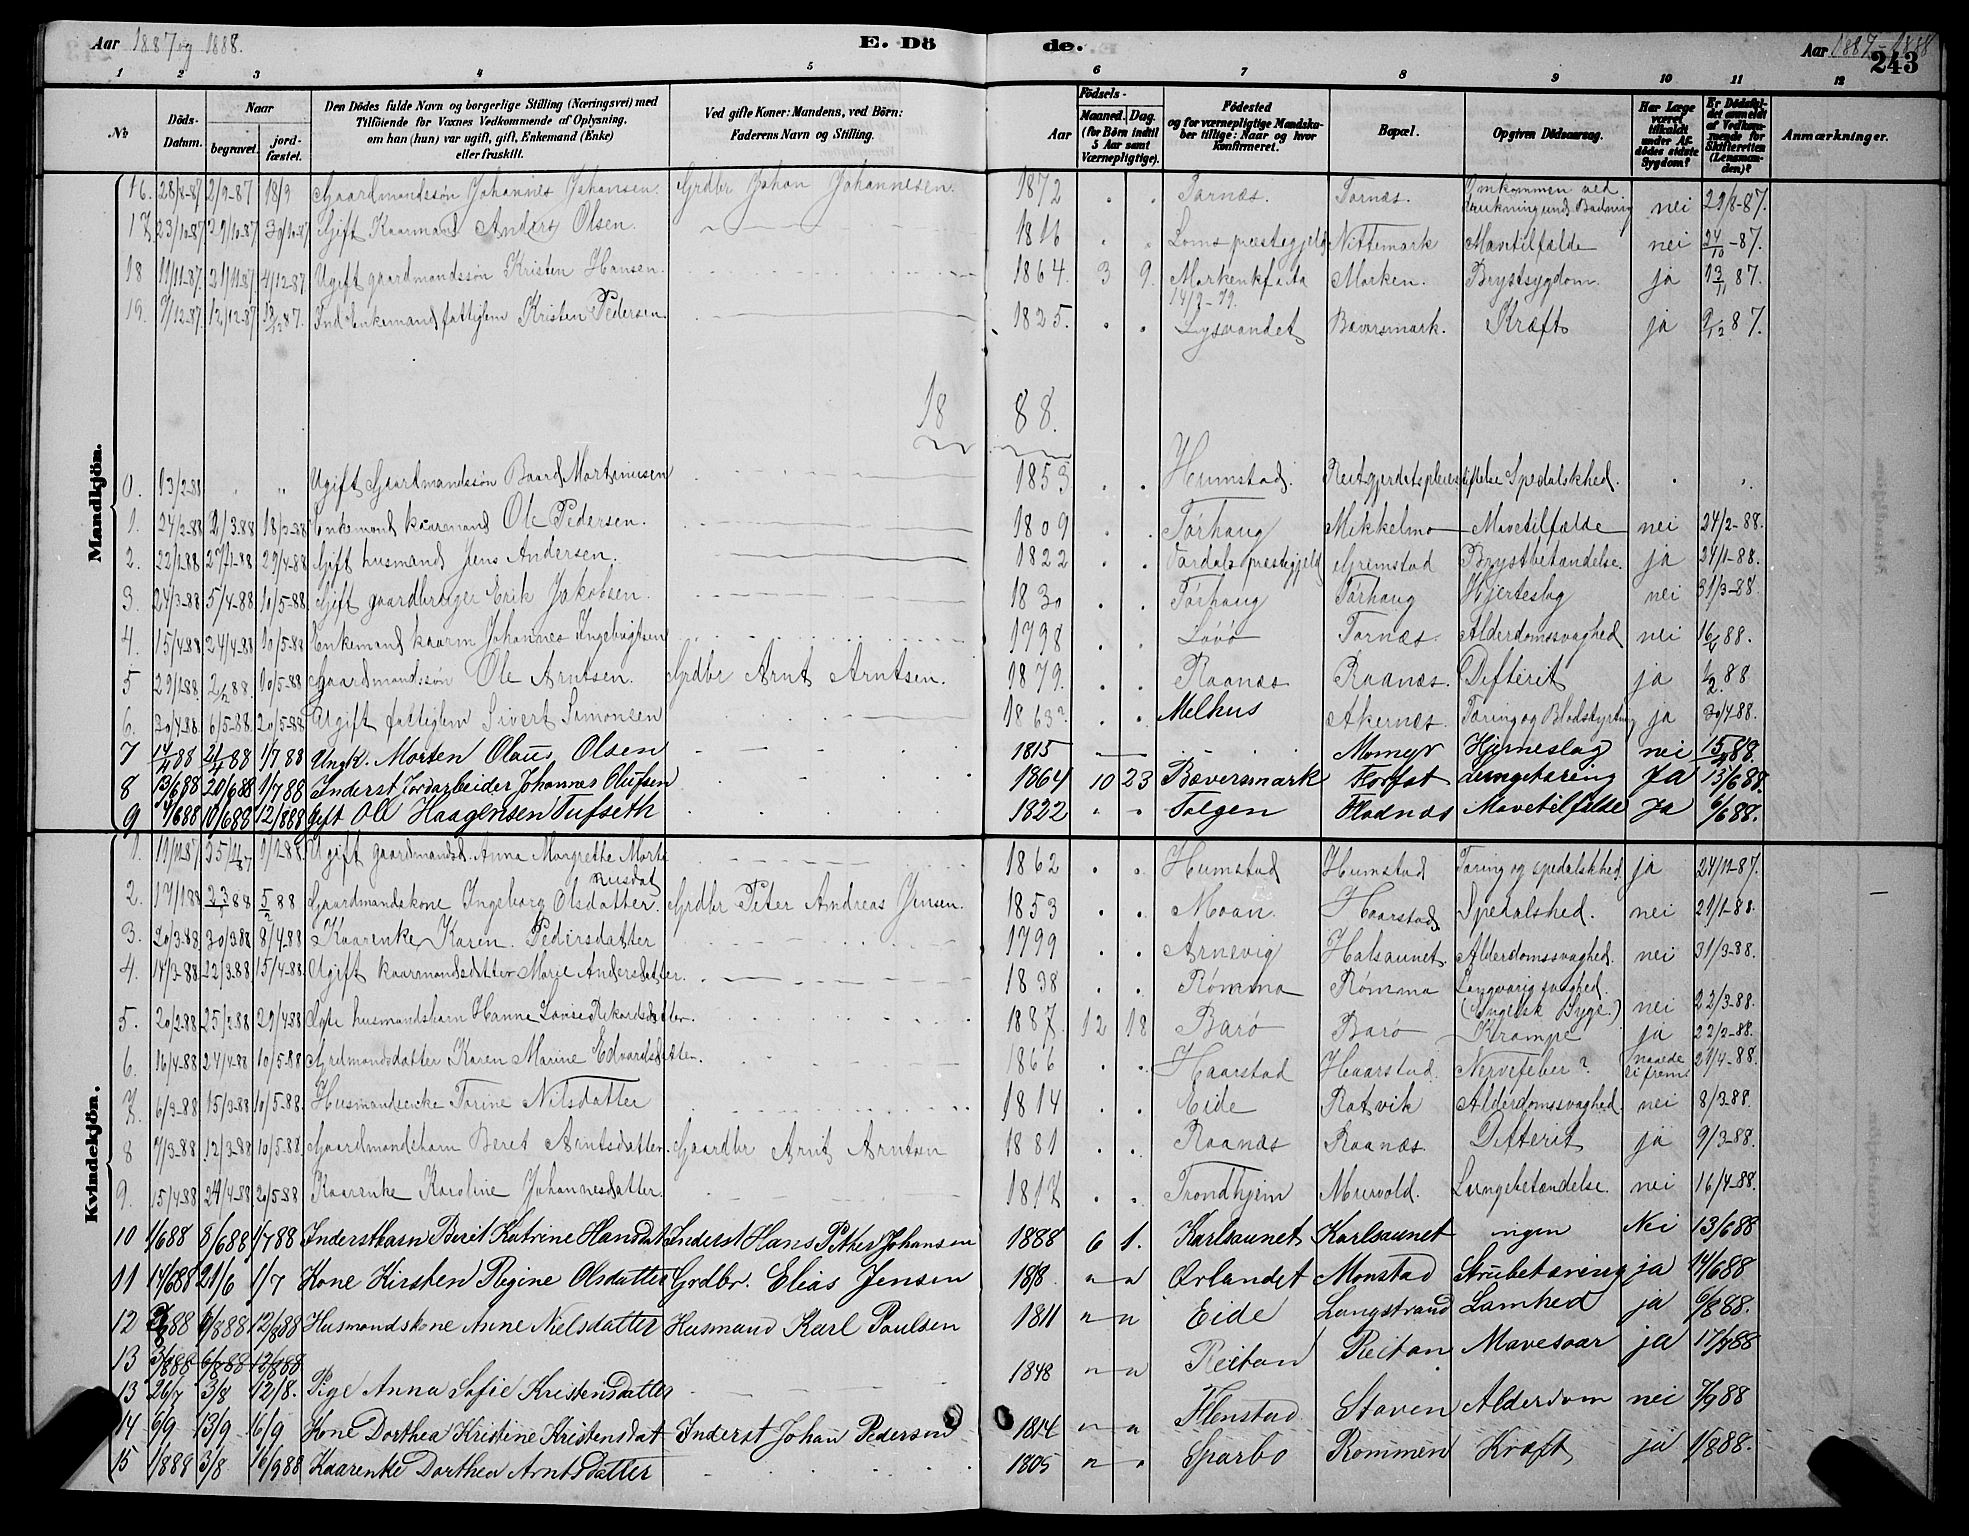 Aar 1887 og 1888. E. Döde. Aar 1887-1888
243
1 2 3 4 5 6 7 8 9 10 11 12
No Döds-Datum. Naar begravet. jord-fæstet. Den Dödes fulde Navn og borgerlige Stilling (Næringsvei) med Tilföiende for Voxnes Vedkommende af Oplysning, om han (hun) var ugift, gift, Enkemand (Enke) eller fraskilt. Ved gifte Koner: Mandens, ved Börn: Faderens Navn og Stilling. Födsels- Aar Maaned. Dag. (for Börn indtil 5 Aar samt Værnepligtige). Födested og for værnepligtige Mandskaber tillige: Naar og hvor Konfirmeret. Bopæl. Opgiven Dödsaarsag. Har Læge været tilkaldt under Afdödes sidste Sygdom? Er Dödsfaldet anmeldt af Vedkommende for Skifteretten (Lensmanden)? Anmærkninger.
Mandkjön.
16. 28/8-87 2/9-87 18/9 Gaardmandssøn Johannes Johansen. Grdbr Johan Johannesen. 1872 Tarnæs. Tarnæs. Omkommen ved Drukning und. Badning nei 29/8-87.
17 23/10-87 29/10-87 30/10-87 Gift Kaarmand Anders Olsen 1816 Loms præstegjeld Nittemark Mavetilfælde nei 24/10-87.
18 11/11-87 21/11-87 4/12-87 Ugift gaardmandssøn Kristen Hansen. 1864. 3 9. Markenkfasta 14/9-79. Marken. Brystsygdom. ja 13/11 87.
19. 7/12-87 12/12-87 13/12 87. Ind. Enkemand fattiglem Kristen Pedersen 1825. Lysvandet Bæversmark. Kræft ja 9/12 87.
1888.
0. 13/2-88 " " Ugift Gaardmandssøn Baard Martinusen 1853 Humstad. Reitgjerdetspleiestiftelse Spedalskhed.
1. 24/2-88 2/3-88 18/3-88 Enkemand kaarmand Ole Pedersen. 1809 Tørhaug Mikkelmo Mavetilfælde nei 24/2-88.
2. 22/1-88 27/1-88 29/4-88 Gift husmand Jens Andersen. 1822 præstegjeld Gremstad Brystbetændelse. ja 24/1-88.
3. 24/3-88 5/4-88 10/5-88 Gift gaardbruger Erik Jakobsen. 1830 Tørhaug Tørhaug Hjerteslag nei 31/3-88.
4. 15/4-88 24/4-88 10/5-88 Enkemand kaarm Johannes Ingebrigtsen 1798 Løvø Tarnæs Alderdomssvaghed nei 16/4 88.
5 29/1-88. 2/2 88. 10/5-88 Gaardmandssøn Ole Arntsen. Grdbr Arnt Arntsen. 1879. Raanæs Raanæs. Difterit ja 1/2 88
6. 30/4-88 6/5-88 20/5-88 Ugift fattiglem Sivert Simonsen 1863? Melhus Akernæs. Tæring og Blodstyrtning ja 30/4-88.
7 14/4 88 21/4 88 1/7 88 Ungk. Morten Olaus Olsen 1815 Momyr Hjerneslag nei 15/4 88.
8 13/6 88 20/6 88 1/7 88 Inderst Jordarbeider Johannes Olufsen 1864 10 23 Bæversmark Forfot Lungetæring Ja 13/6 88.
9 4/6 88 10/6 88 12/8 88 Gift Ole Haagensen Tufseth 1822 Tolgen Flodnæs Mavetilfælde Ja 6/6 88.
Kvindekjön.
1. 19/11-87 25/11 87 1/1-88. Ugift gaardmandsd. Anna Margrethe Martinusdat 1862 Humstad Humstad Tæring og spedalskhed. ja 24/11-87.
2. 17/1 88 23/1 88 5/2 88 Gaardmandskone Ingeborg Olsdatter. Grdbr Peter Andreas Jensen. 1853 Moan. Haarstad Spedalshed. nei 21/1-88.
3. 20/3-88 30/3-88 8/4-88 Kaarenke Karen Pedersdatter 1799 Arnevig Halsaunet. Alderdomssvaghed. nei 31/3-88.
4. 14/3-88 22/3-88 15/4-88. Ugift kaarmandsdatter Marie Andersdatter. 1838 Rømma Rømma Langvarig svaghed. (Engelsk Syge.) nei 22/3-88.
5. 20/2-88 25/2-88 29/4-88 Ægte husmandsbarn Hanne Lovise Rikardsdatter. 1887. 12 18 Barø Barø Krampe ja 22/2-88.
6. 16/4-88 24/4-88 10/5-88 Grdmandsdatter Karen Marine Edvardsdatter. 1866 Haarstad Haarstad. Nervefeber? naaede ei frem. 21/4-88.
7. 6/3-88 15/3-88 10/5-88. Husmandsenke Tarine Nilsdatter 1814 Eide Ratvik Alderdomssvaghed. nei 8/3-88.
8 7/3-88 12/3-88 10/5-88 Gaardmandsbarn Beret Arntsdatter. Gaardbr Arnt Arntsen 1881 Raanæs Raanæs. Difterit ja 9/3-88.
9. 15/4-88 24/4-88 20/5-88 Kaarenke Karoline Johannesdatter. 1817 Trondhjem Murvold. Lungebetændelse. nei 16/4-88.
10 1/6 88 8/6 88 1/7 88 Inderstbarn Berit Katrine Hansdat Inderst Hans Petter Johansen 1888 6 1. Karlsaunet Karlsaunet ingen Nei 13/6 88
11 14/6 88 21/6 1/7 Kone Kirsten Regine Olsdatter Grdbr. Elias Jensen 1818. " " Ørlandet Monstad Strubetæring ja 14/6 88
12 88 6/8 88 12/8 88 Husmandskone Anne Nielsdatter Husmand Karl Paulsen 1811 " " Eide Langstrand Lamhed ja 6/8 88.
13 3/8 88 6/8 88 12/8 88
13 26/7 3/8 12/8. Pige Anna Sofie Kristensdatter 1848 " " Reitan Reitan Mavesaar ja 88
14 6/9 13/9 16/9 Kone Dorthea Kristine Kristensdat Inderst Johan Pedersen 1814 " " Flenstad Staven Alderdom nei 7/9 88
15 1/8 88 3/8 16/9 88 Kaarenke Dorthea Arntsdatter 1805 " Sparbo Rømmen Kræft ja 1/8 88.